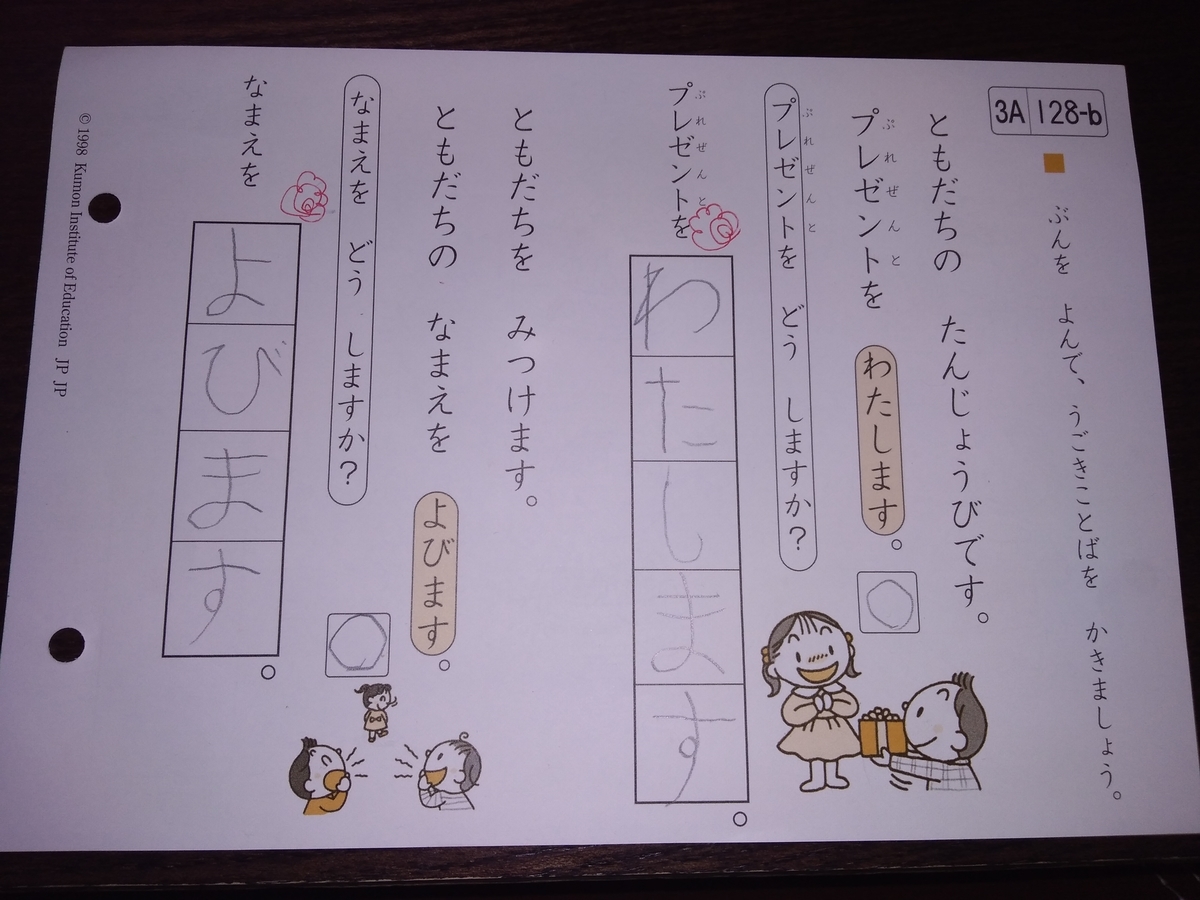 3A 128-b
ぶんを よんで、うごきことばを かきましょう。
ともだちの たんじょうびです。
プレゼントを わたします。
ぷれぜんと
プレゼントを どう しますか?
ぷれぜんと
プレゼントを わたします。
ぷれぜんと
ともだちを みつけます。
ともだちの なまえを よびます。
なまえを どう しますか?
なまえを よびます。
© 1998 Kumon Institute of Education JP JP